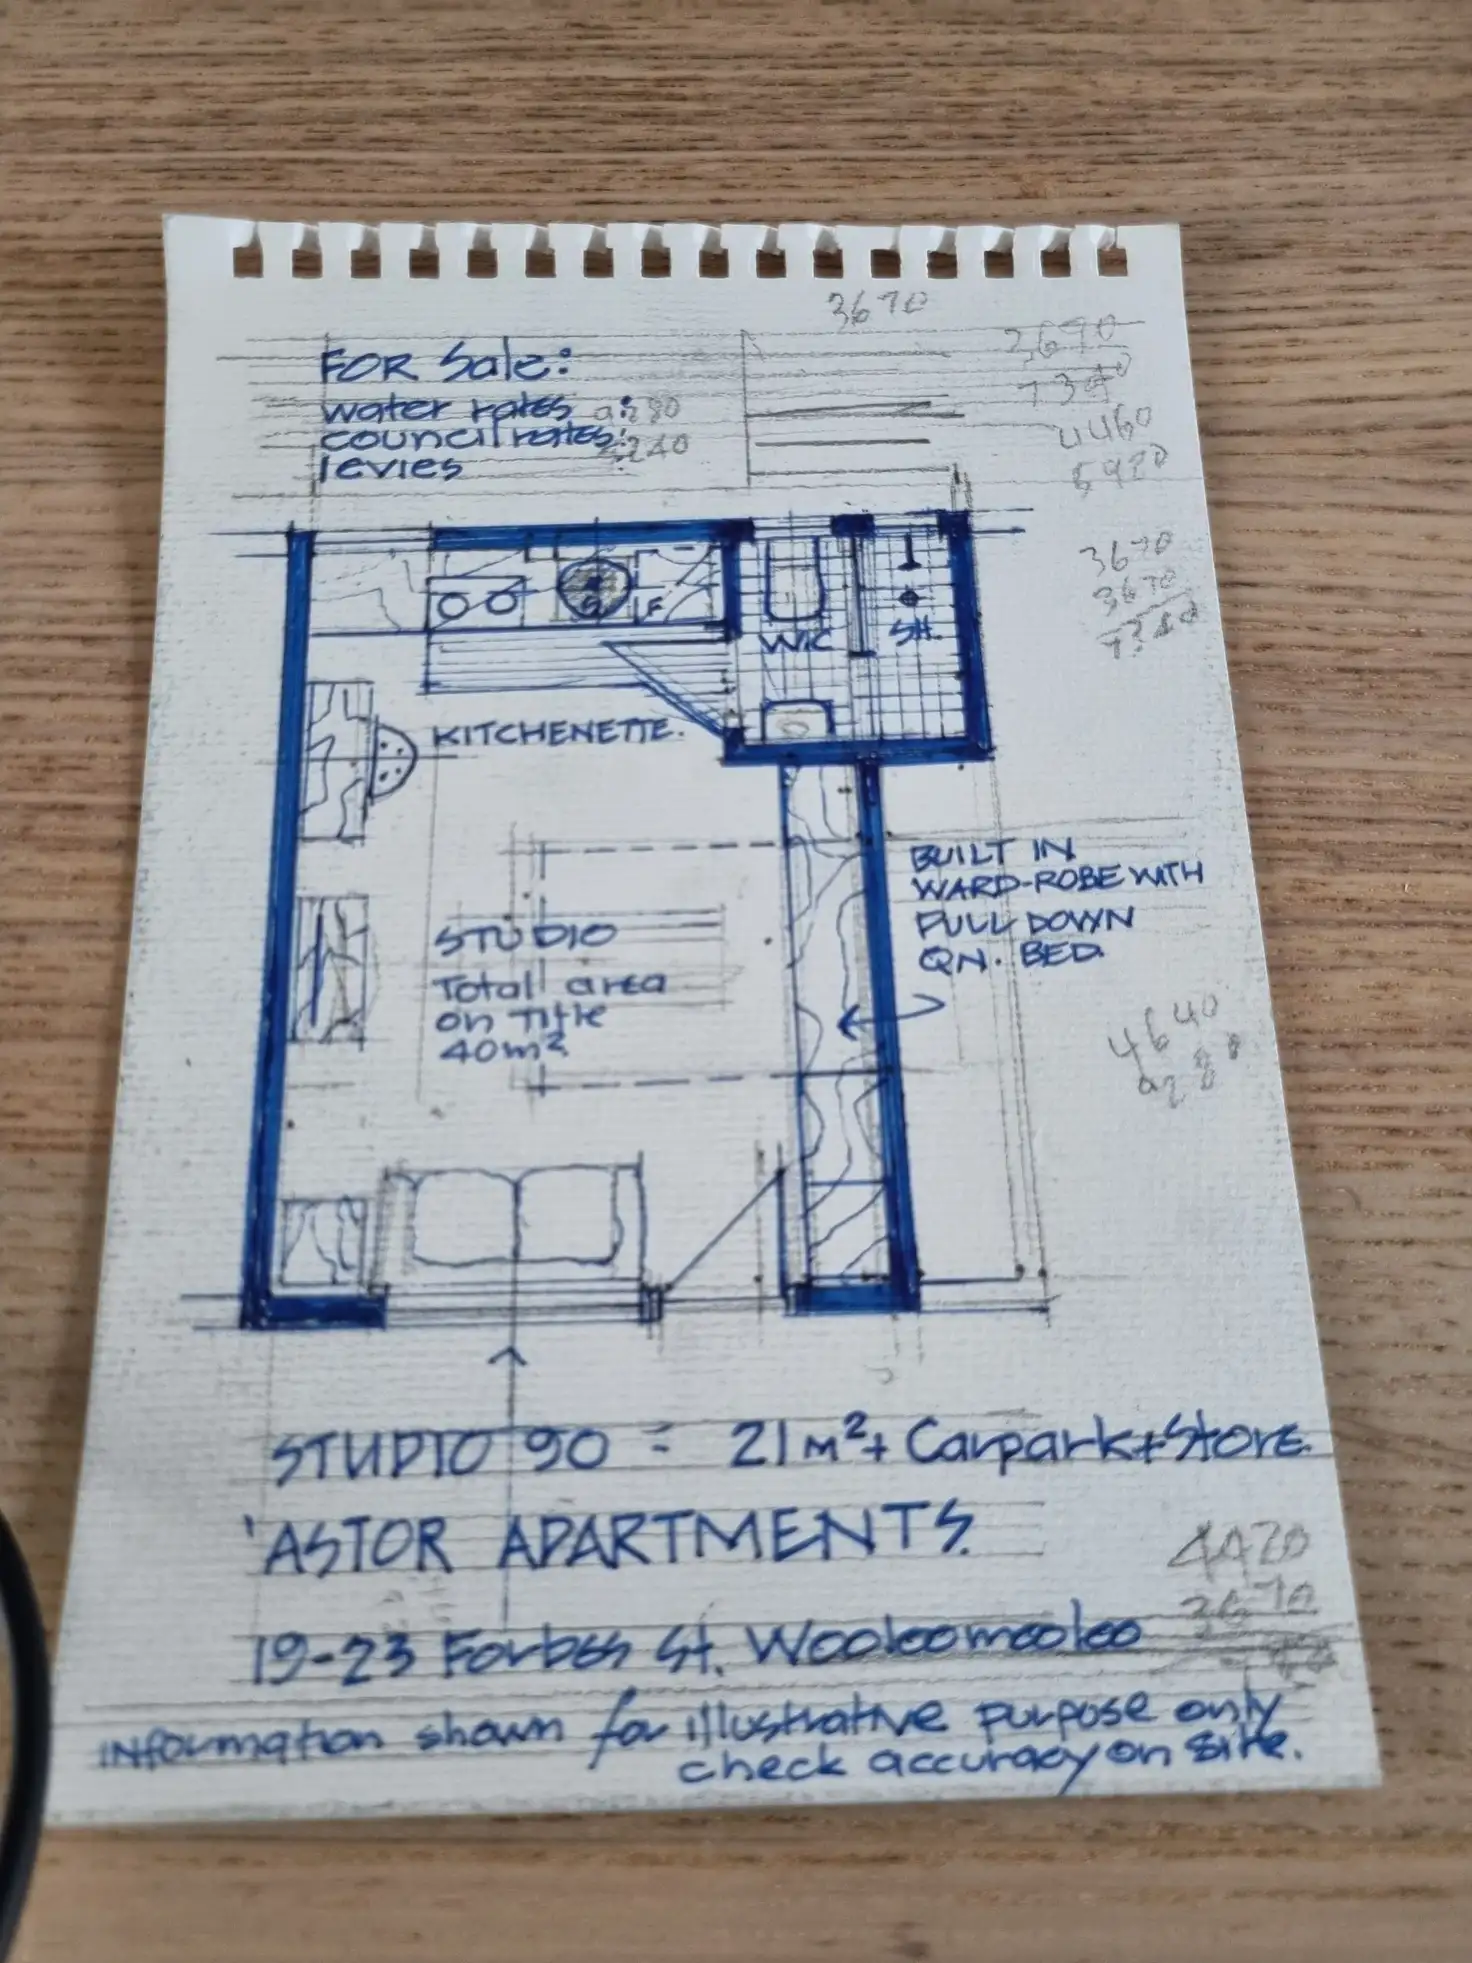 3670
FOR Sale:
water rates :
council rates:
levies
3670
7340
4460
3670
3670
7340
F
W/C
SH.
KITCHENETTE.
BUILT IN
WARD-ROBE WITH
PULL DOWN
QN. BED.
STUDIO
Total area
on Title
40m²
4640
STUDIO 90 = 21m²+ Carpark+Store.
'ASTOR APARTMENTS.
3670
19-23 Forbes St. Wooloomooloo
information shown for illustrative purpose only
check accuracy on site.